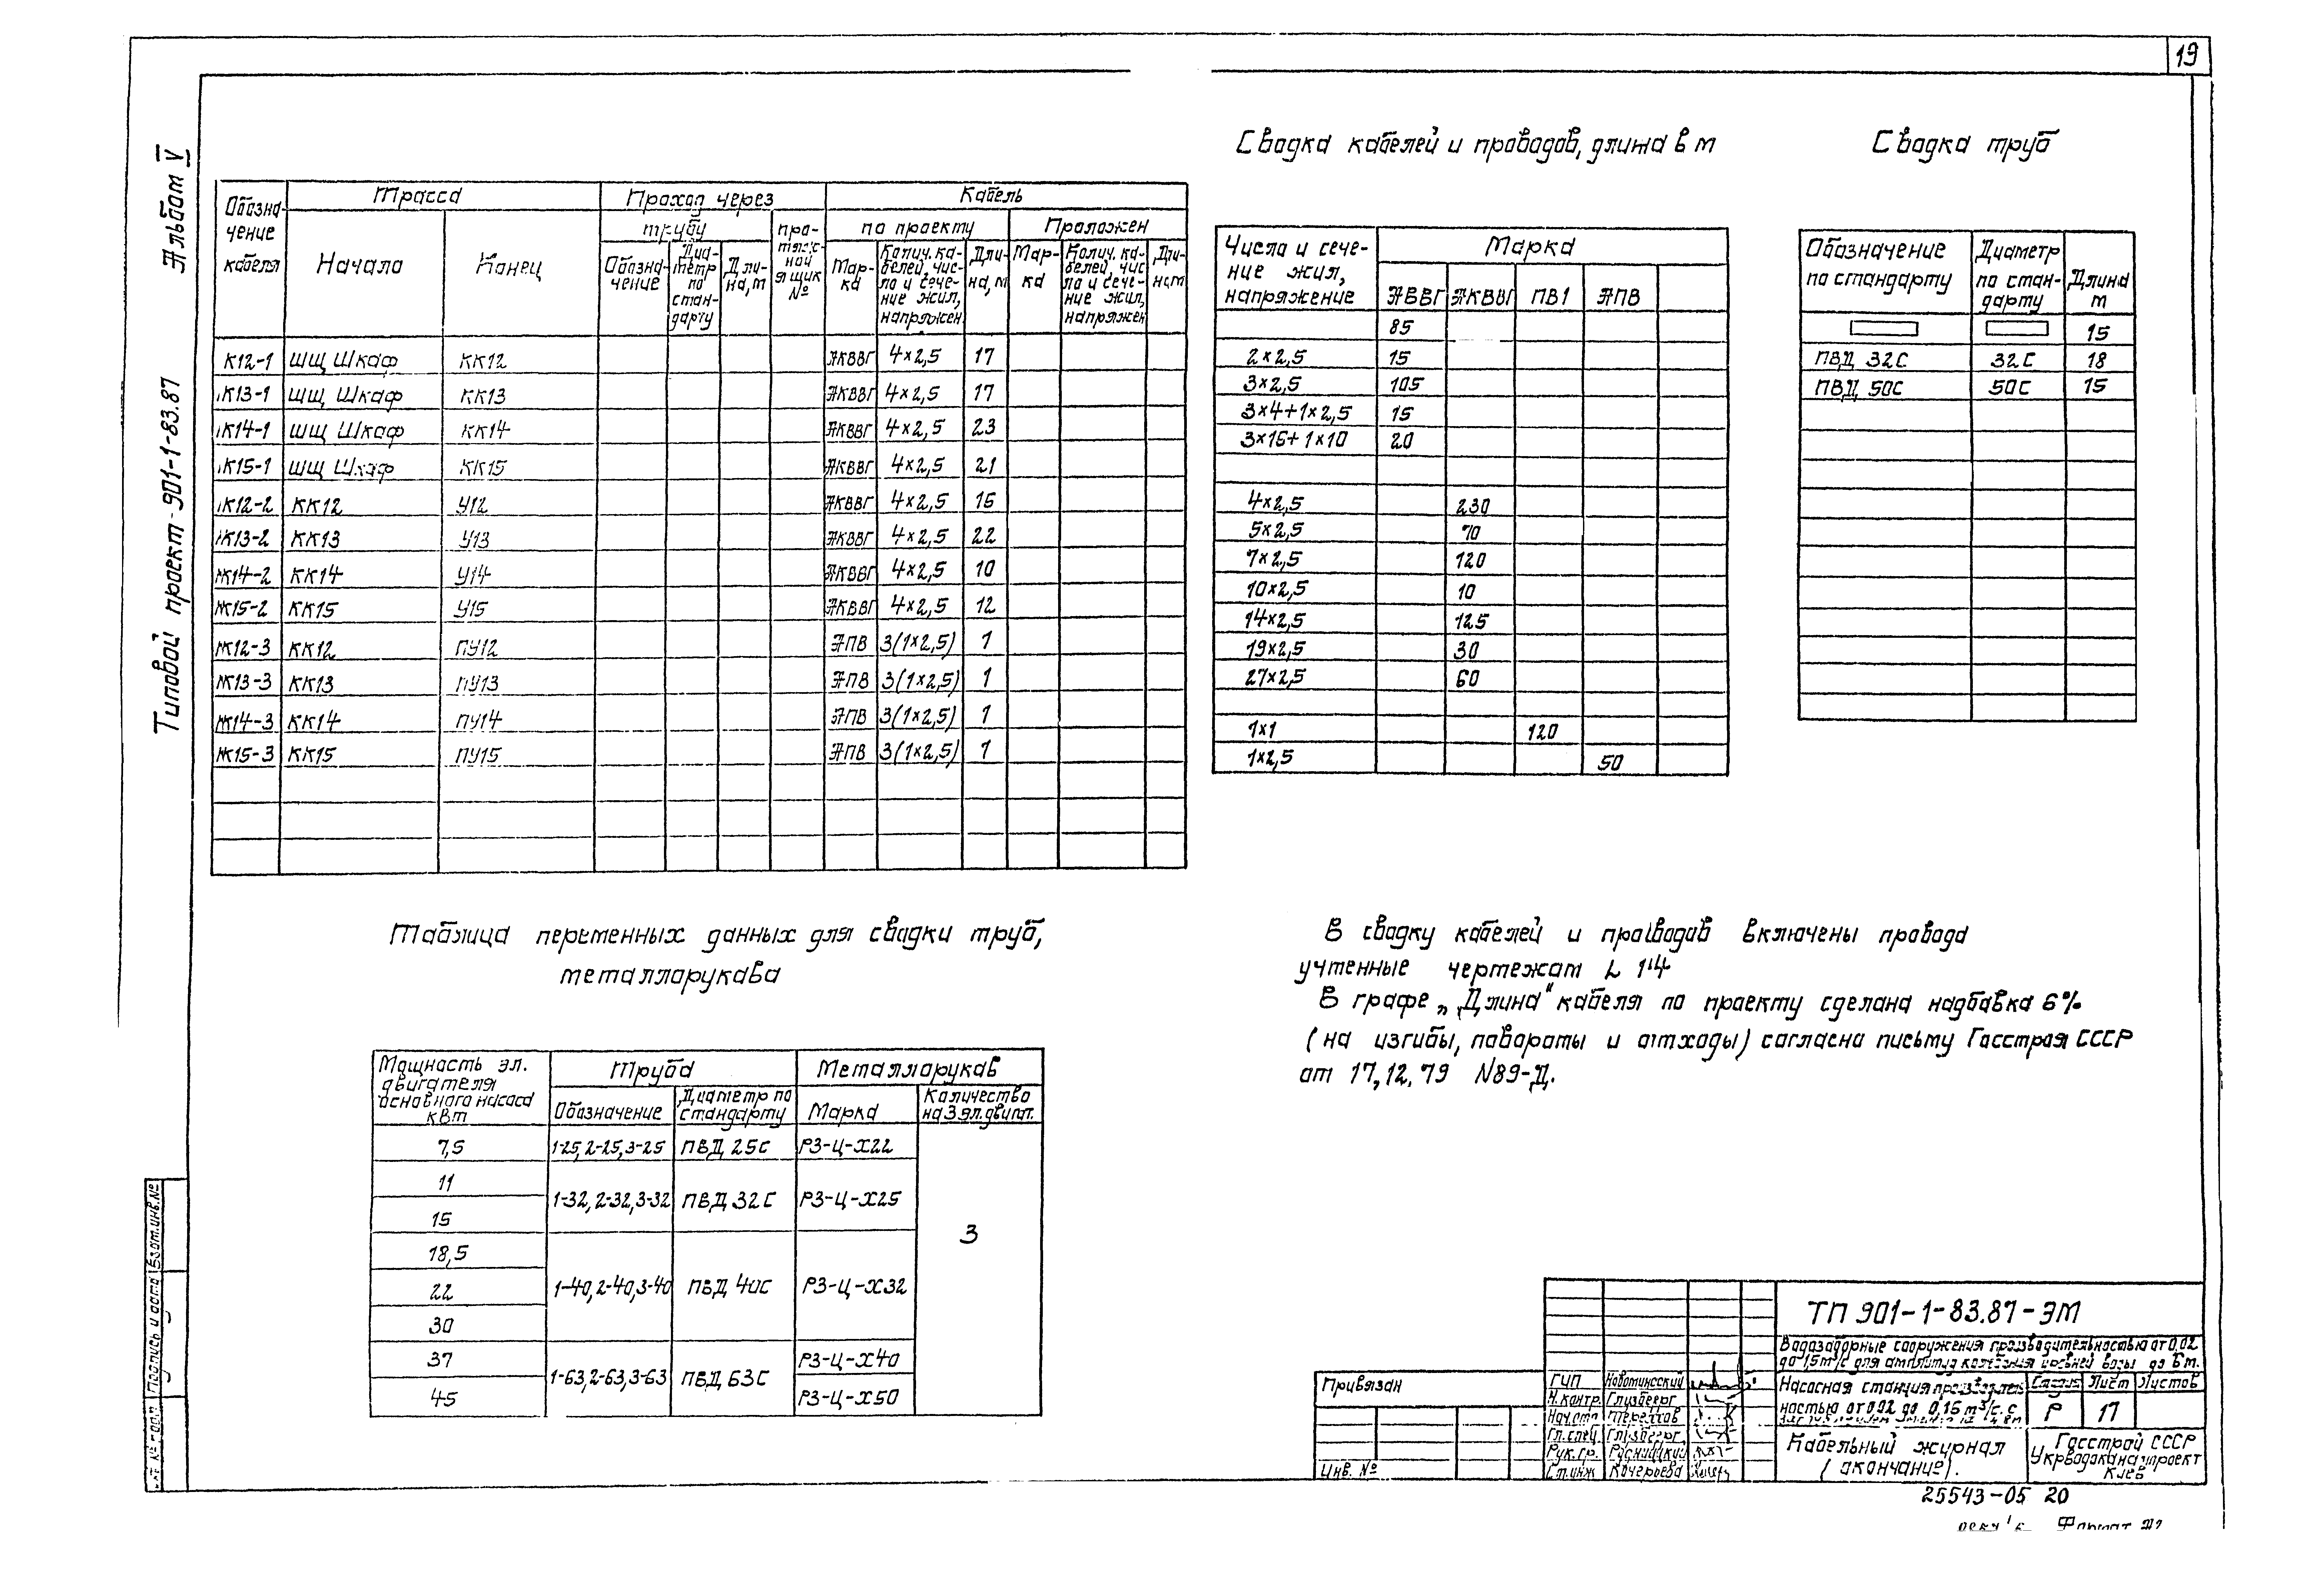 19
Альбом V
Типовой проект 901-1-83.87
Обозна-
чение
кабеля
Трасса
Начало
Конец
Проход через
трубу
Обозна-
чение
Диа-
метр
по
стан-
дарту
Дли-
на, м
про-
тяж-
ной
ящик
№
Кабель
по проекту
Проложен
Мар-
ка
Колич. ка-
белей, чис-
ло и сече-
ние жил,
напряжен.
Дли-
на, м
Мар-
ка
Колич. ка-
белей, чис
ло и сече-
ние жил,
напряжен
Дли-
на, м
К12-1 ШЩ Шкаф КК12 АКВВГ 4×2,5 17
К13-1 ШЩ Шкаф КК13 АКВВГ 4×2,5 17
К14-1 ШЩ Шкаф КК14 АКВВГ 4×2,5 23
К15-1 ШЩ Шкаф КК15 АКВВГ 4×2,5 21
К12-2 КК12 У12 АКВВГ 4×2,5 15
К13-2 КК13 У13 АКВВГ 4×2,5 22
К14-2 КК14 У14 АКВВГ 4×2,5 10
К15-2 КК15 У15 АКВВГ 4×2,5 12
К12-3 КК12 ПУ12 АПВ 3(1×2,5) 1
К13-3 КК13 ПУ13 АПВ 3(1×2,5) 1
К14-3 КК14 ПУ14 АПВ 3(1×2,5) 1
К15-3 КК15 ПУ15 АПВ 3(1×2,5) 1
Сводка кабелей и проводов, длина в м
Число и сече-
ние жил,
напряжение
Марка
АВВГ АКВВГ ПВ1 АПВ
85
2×2,5 15
3×2,5 105
3×4+1×2,5 15
3×16+1×10 20
4×2,5 230
5×2,5 70
7×2,5 120
10×2,5 10
14×2,5 125
19×2,5 30
27×2,5 60
1×1 120
1×2,5 50
Сводка труб
Обозначение
по стандарту
Диаметр
по стан-
дарту
Длина
м
15
ПВД 32С 32С 18
ПВД 50С 50С 15
Таблица переменных данных для сводки труб,
металлорукава
Мощность эл.
двигателя
основного насоса
кВт
Труба
Обозначение
Диаметр по
стандарту
Металлорукав
Марка
Количество
на 3 эл.двигат.
7,5 1-25, 2-25, 3-25 ПВД 25С РЗ-Ц-Х22
11
1-32, 2-32, 3-32 ПВД 32С РЗ-Ц-Х25
15
3
18,5
22 1-40, 2-40, 3-40 ПВД 40С РЗ-Ц-Х32
30
37 РЗ-Ц-Х40
1-63, 2-63, 3-63 ПВД 63С
45 РЗ-Ц-Х50
В сводку кабелей и проводов включены провода
учтенные чертежам L 14
В графе „Длина" кабеля по проекту сделана надбавка 6%
(на изгибы, повороты и отходы) согласно письму Госстроя СССР
от 17,12,79 N89-Д.
Привязан
Инв. №
ГИП Новоминский
Н.контр. Глузберг
Нач.отд Терехов
Гл.спец. Глузберг
Рук.гр.
Ст.инж Кочерьева
ТП 901-1-83.87-ЭМ
Водозаборные сооружения производительностью от 0,02
до 1,5м³/с для амплитуд колебания уровней воды до 6 м.
Насосная станция производитель
ностью от 0,02 до 0,15 м³/с. с
Стадия Лист Листов
Р 17
Кабельный журнал
(окончание).
Госстрой СССР
Укрводоканалпроект
Киев
25543-05 20
Формат А2
Взам.инв.№
Подпись и дата